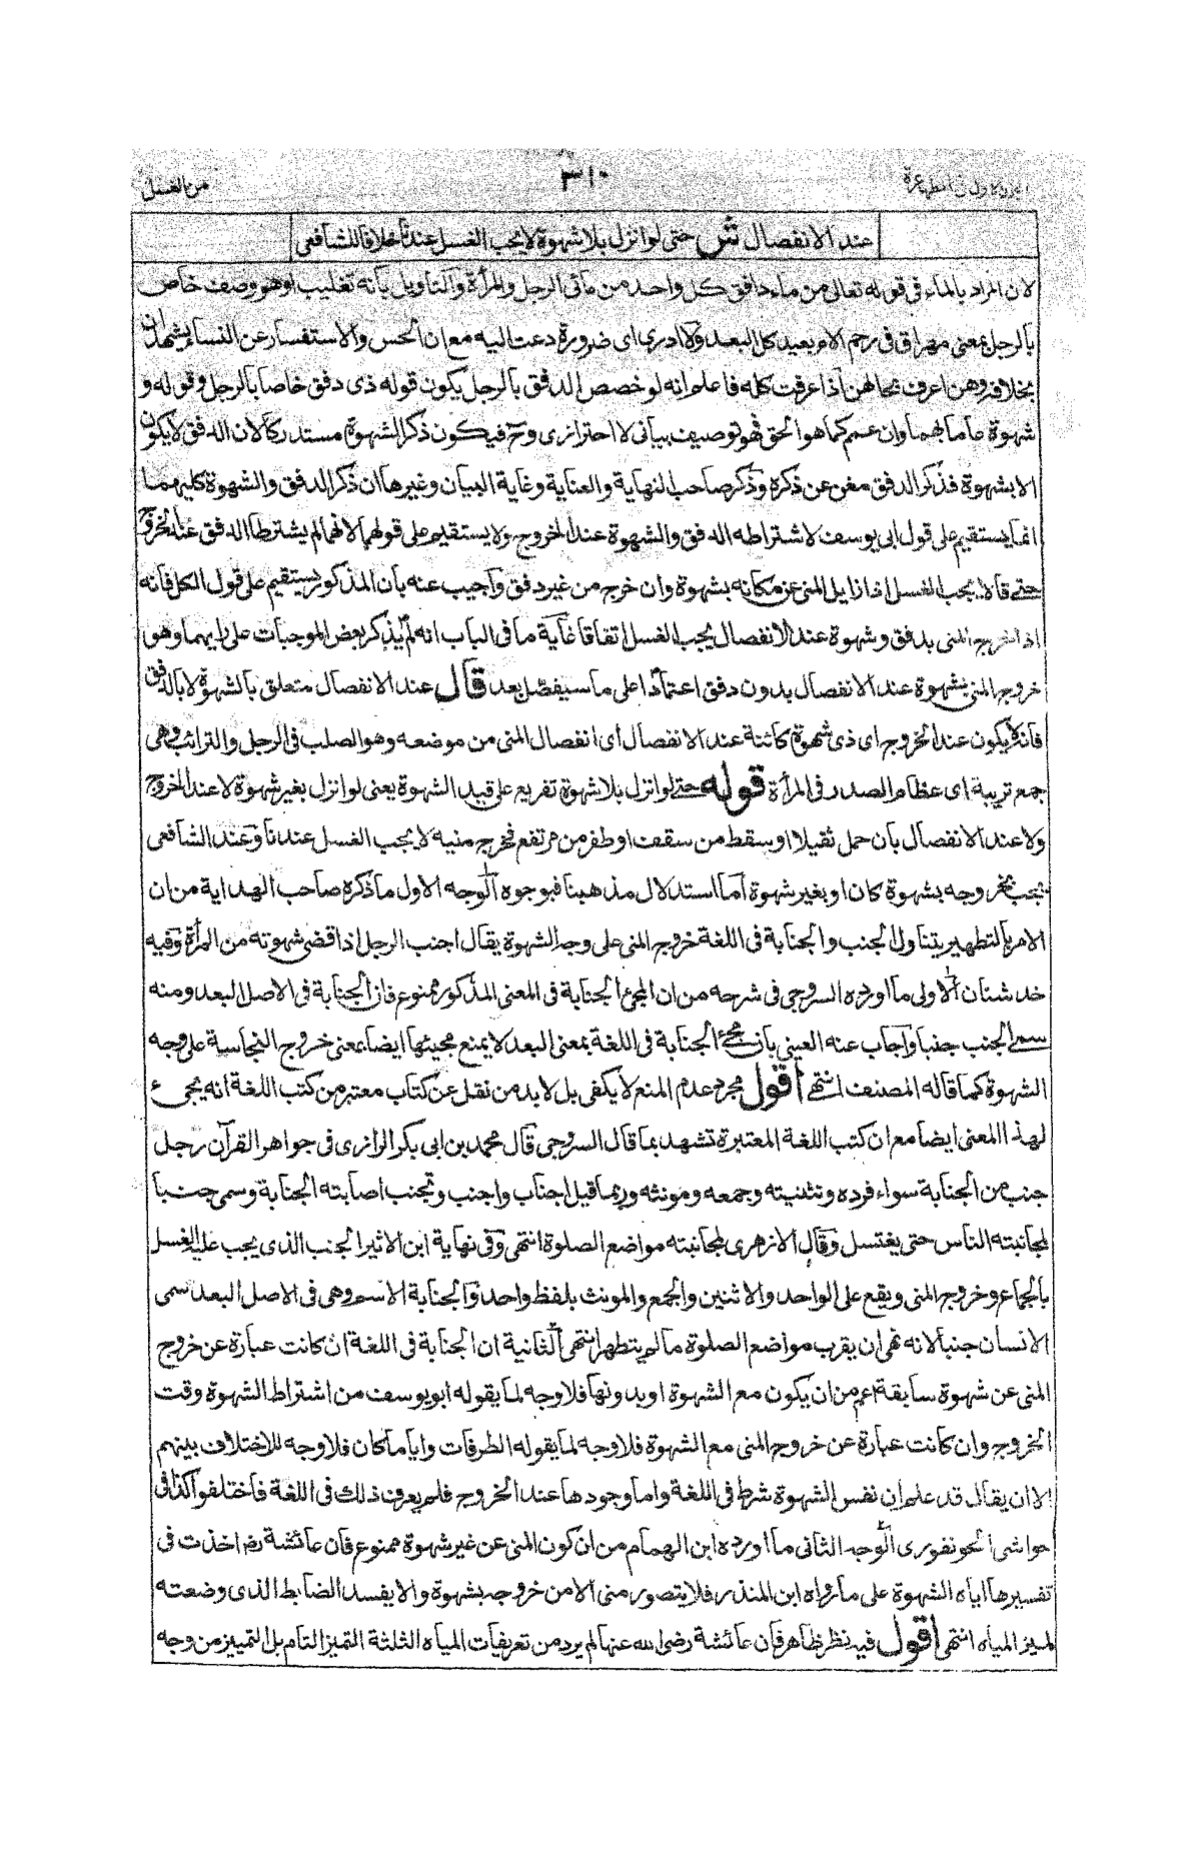 ٣١٠
من الغسل
عند الانفصال ش حتى لو انزل بلا شهوة لا يجب الغسل عندنا خلافا للشافعى
لان المراد بالماء فى قوله تعالى من ماء دافق كل واحد من مائى الرجل والمرأة والتاويل بانه تغليب او هو وصف خاص
بالرجل بمعنى مهراق فى رحم الام بعيد كل البعد ولا ادرى اى ضرورة دعت اليه مع ان الحس والاستفسار عن النساء يشهدان
بخلافه وهن اعرف بحالهن اذا عرفت كله فاعلم انه لو خصص الدفق بالرجل يكون قوله ذى دفق خاصا بالرجل وقوله و
شهوة عاما لهما وان عمم كما هو الحق فهو توصيف بيانى لا احترازى وح فيكون ذكر الشهوة مستدركا لان الدفق لا يكون
الا بشهوة فذكر الدفق مغن عن ذكره وذكر صاحب النهاية والعناية وغاية البيان وغيرها ان ذكر الدفق والشهوة كليهما
انما يستقيم على قول ابى يوسف لاشتراطه الدفق والشهوة عند الخروج ولا يستقيم على قولهما لانهما لم يشترطا الدفق عند الخروج
حتى قالا يجب الغسل اذا زايل المنى عن مكانه بشهوة وان خرج من غير دفق واجيب عنه بان المذكور يستقيم على قول الكل فانه
اذا خرج المنى بدفق وشهوة عند الانفصال يجب الغسل اتفاقا غاية ما فى الباب انه لم يذكر بعض الموجبات على رايهما وهو
خروج المنى بشهوة عند الانفصال بدون دفق اعتمادا على ما سيفصل بعد قال عند الانفصال متعلق بالشهوة لا بالدفق
فانه لا يكون عند الخروج اى ذى شهوة كائنة عند الانفصال اى انفصال المنى من موضعه وهو الصلب فى الرجل والترائب وهى
جمع تريبة اى عظام الصدر فى المرأة قوله حتى لو انزل بلا شهوة تفريع على قيد الشهوة يعنى لو انزل بغير شهوة لا عند الخروج
ولا عند الانفصال بان حمل ثقيلا او سقط من سقف او طفر من مرتفع فخرج منيه لا يجب الغسل عندنا وعند الشافعى
يجب بخروجه بشهوة كان او بغير شهوة اما استدلال مذهبنا فبوجوه الوجه الاول ما ذكره صاحب الهداية من ان
الامر بالتطهير يتناول الجنب والجنابة فى اللغة خروج المنى على وجه الشهوة يقال اجنب الرجل اذا قضى شهوته من المرأة وفيه
خدشتان الاولى ما اورده السروجى فى شرحه من ان المجئ الجنابة فى المعنى المذكور ممنوع فان الجنابة فى الاصل البعد ومنه
سمى الجنب جنبا واجاب عنه العينى بان مجئ الجنابة فى اللغة بمعنى البعد لا يمنع مجيئها ايضا بمعنى خروج النجاسة على وجه
الشهوة كما قاله المصنف انتهى اقول مجرد عدم المنع لا يكفى بل لا بد من نقل عن كتاب معتبر من كتب اللغة انه يجىء
لهذا المعنى ايضا مع ان كتب اللغة المعتبرة تشهد بما قال السروجى قال محمد بن ابى بكر الرازى فى جواهر القرآن رجل
جنب من الجنابة سواء فرده وتثنيته وجمعه ومونثه وربما قيل اجناب واجنب وتجنب اصابته الجنابة وسمى جنبا
لمجانبته الناس حتى يغتسل وقال الازهرى لمجانبته مواضع الصلوة انتهى وفى نهاية ابن الاثير الجنب الذى يجب عليه الغسل
بالجماع وخروج المنى ويقع على الواحد والاثنين والجمع والمونث بلفظ واحد والجنابة الاسم وهى فى الاصل البعد سمى
الانسان جنبا لانه نهى ان يقرب مواضع الصلوة ما لم يتطهر انتهى الثانية ان الجنابة فى اللغة ان كانت عبارة عن خروج
المنى عن شهوة سابقة اعم من ان يكون مع الشهوة او بدونها فلا وجه لما يقوله ابو يوسف من اشتراط الشهوة وقت
الخروج وان كانت عبارة عن خروج المنى مع الشهوة فلا وجه لما يقوله الطرفات واياما كان فلا وجه للاختلاف بينهم
الا ان يقال قد علم ان نفس الشهوة شرط فى اللغة واما وجودها عند الخروج فلم يعرف ذلك فى اللغة فاختلفوا كذا فى
حواشى الجونفورى الوجه الثانى ما اورده ابن الهمام من ان كون المنى عن غير شهوة ممنوع فان عائشة رض اخذت فى
تفسيرها اياه الشهوة على ما رواه ابن المنذر فلا يتصور منى الا من خروجه بشهوة والا يفسد الضابط الذى وضعته
لميز المياه انتهى اقول فيه نظر ظاهر فان عائشة رضى الله عنها لم يرد من تعريفات المياه الثلثة التميز التام بل التمييز من وجه